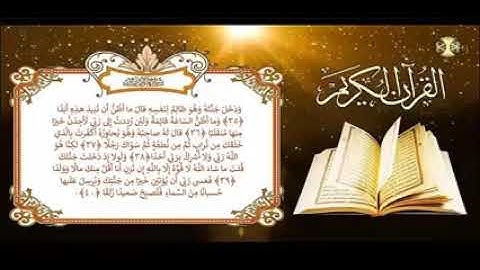 القرآن الكريم
وَدَخَلَ جَنَّتَهُ وَهُوَ ظَالِمٌ لِنَفْسِهِ قَالَ مَا أَظُنُّ أَنْ تَبِيدَ هَذِهِ أَبَدًا
﴿٣٥﴾ وَمَا أَظُنُّ السَّاعَةَ قَائِمَةً وَلَئِنْ رُدِدْتُ إِلَى رَبِّي لَأَجِدَنَّ خَيْرًا
مِنْهَا مُنْقَلَبًا ﴿٣٦﴾ قَالَ لَهُ صَاحِبُهُ وَهُوَ يُحَاوِرُهُ أَكَفَرْتَ بِالَّذِي
خَلَقَكَ مِنْ تُرَابٍ ثُمَّ مِنْ نُطْفَةٍ ثُمَّ سَوَّاكَ رَجُلًا ﴿٣٧﴾ لَكِنَّا هُوَ
اللَّهُ رَبِّي وَلَا أُشْرِكُ بِرَبِّي أَحَدًا ﴿٣٨﴾ وَلَوْلَا إِذْ دَخَلْتَ جَنَّتَكَ
قُلْتَ مَا شَاءَ اللَّهُ لَا قُوَّةَ إِلَّا بِاللَّهِ إِنْ تَرَنِ أَنَا أَقَلَّ مِنْكَ مَالًا وَوَلَدًا
﴿٣٩﴾ فَعَسَى رَبِّي أَنْ يُؤْتِيَنِ خَيْرًا مِنْ جَنَّتِكَ وَيُرْسِلَ عَلَيْهَا
حُسْبَانًا مِنَ السَّمَاءِ فَتُصْبِحَ صَعِيدًا زَلَقًا ﴿٤٠﴾